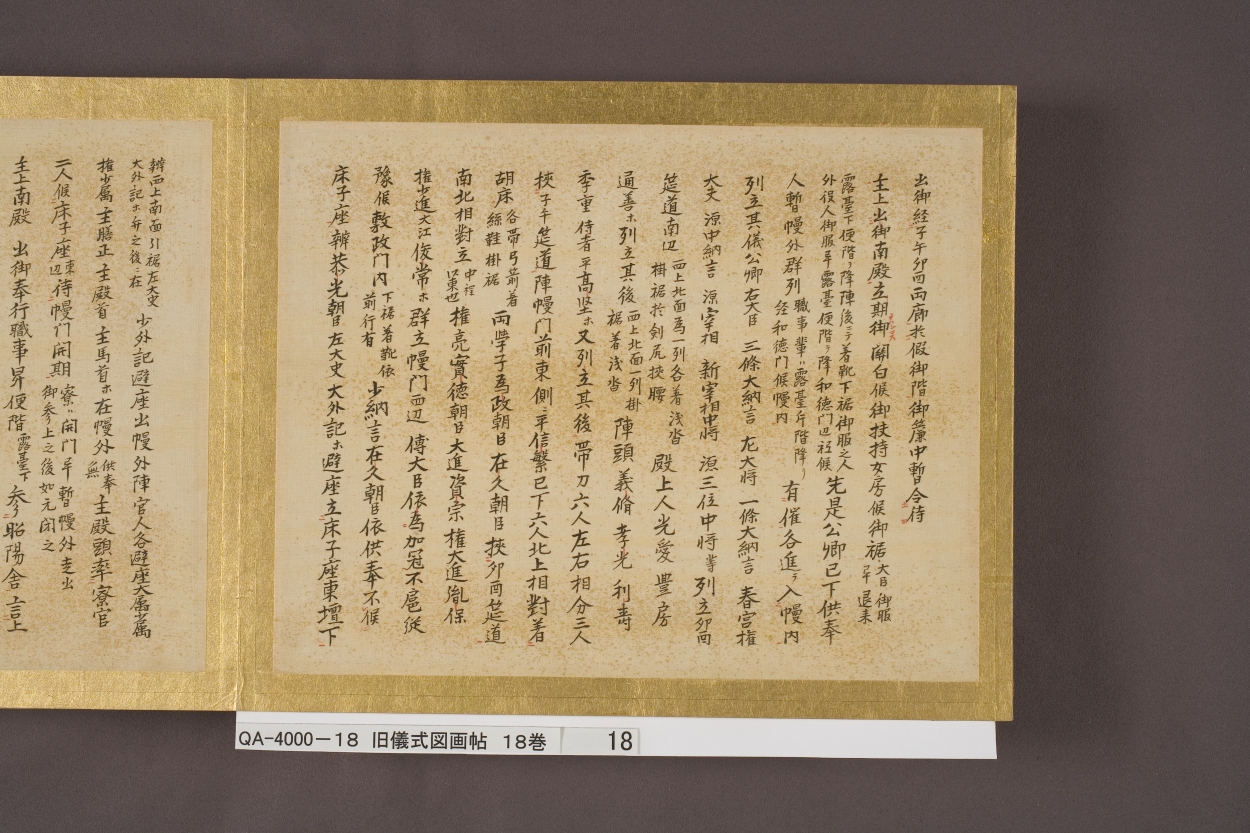 出御経子午卯酉両廊於假御階御簾中暫令待
主上出御南殿立期御關白候御扶持女房候御裾大臣御服早退来
露臺下便階ヲ降陣後ニテ着靴下裾御服之人
外役人御服早露臺便階ヲ降和徳門辺経候
先是公卿已下供奉
人暫幔外群列
職事輩ハ露臺斤階降り
経和徳門候幔内
有催各進テ入幔内
列立其儀公卿右大臣三條大納言左大将一條大納言春宮権
大夫源中納言源宰相新宰相中将源三位中将等列立卯酉
筵道南辺
西上北面為一列各着浅沓
掛裾於剣尻挾腰
殿上人光愛豊房
通善ホ列立其後
西上北面一列掛
裾着浅沓
陣頭義脩孝光利壽
季重侍者平高堅ホ又列立其後帶刀六人左右相分三人
挾子午筵道陣幔門前東側ニ平信繁已下六人北上相對着
胡床
各帶弓箭着
絲鞋掛裾
両學子為政朝臣在久朝臣挾卯酉筵道
南北相對立
中程
以東也
権亮實徳朝臣大進資宗権大進胤保
権少進大江俊常ホ群立幔門西辺傳大臣依為加冠不扈従
豫候敷政門内
下裾着靴依
前行有
少納言在久朝臣依供奉不候
床子座辨恭光朝臣左大史大外記ホ避座立床子座東壇下
辨西上南面引裾左大史
大外記ホ弁之後ニ在
少外記避座出幔外陣官人各避座大属少属
権少属主膳正主殿首主馬首ホ在幔外
供奉
無
主殿頭率寮官
二人候床子座
東
辺
待幔门開期
寮ハ開門早暫幔外走出
御参上之後如元閉之
主上南殿出御奉行職事昇便階露臺下参昭陽舎言上
QA-4000-18 旧儀式図画帖 18巻 18